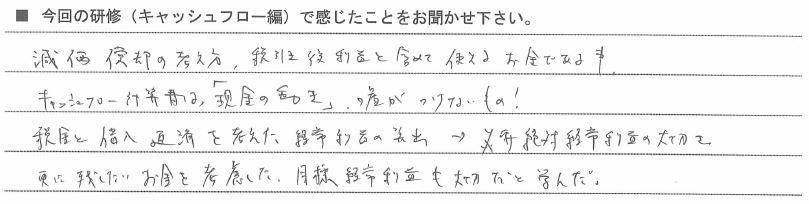 ■ 今回の研修（キャッシュフロー編）で感じたことをお聞かせ下さい。
減価償却の考え方、税引後利益と含めて使えるお金である事。
キャッシュフロー計算書は、「現金の動き」、嘘がつけないもの！
税金と借入返済を考えた経常利益の算出 → 必要絶対経常利益の大切さ
更に残したいお金を考慮した、目標経常利益も大切だと学んだ。